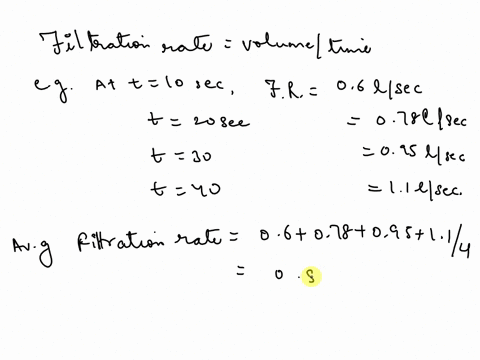 Filtration rate = volume/time
e.g. At t=10 sec, F.R. = 0.6 l/sec
t = 20sec = 0.78 l/sec
t = 30 = 0.95 l/sec
t = 40 = 1.1 l/sec.
Av.g filtration rate = 0.6+0.78+0.95+1.1/4
= 0.8